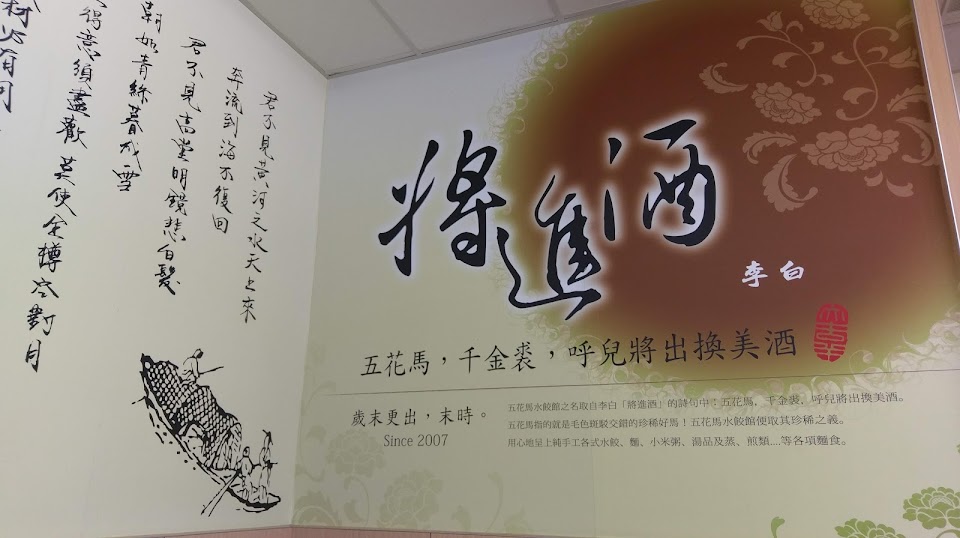 君不見黃河之水天上來
奔流到海不復回
君不見高堂明鏡悲白髮
朝如青絲暮成雪
得意須盡歡 莫使金樽空對月
將進酒
李白
五花馬，千金裘，呼兒將出換美酒
歲末更出，末時。
Since 2007
五花馬水餃館之名取自李白「將進酒」的詩句中；五花馬，千金裘，呼兒將出換美酒。
五花馬指的就是毛色斑駁交錯的珍稀好馬！五花馬水餃館便取其珍稀之義。
用心地呈上純手工各式水餃、麵、小米粥、湯品及蒸、煎類....等各項麵食。